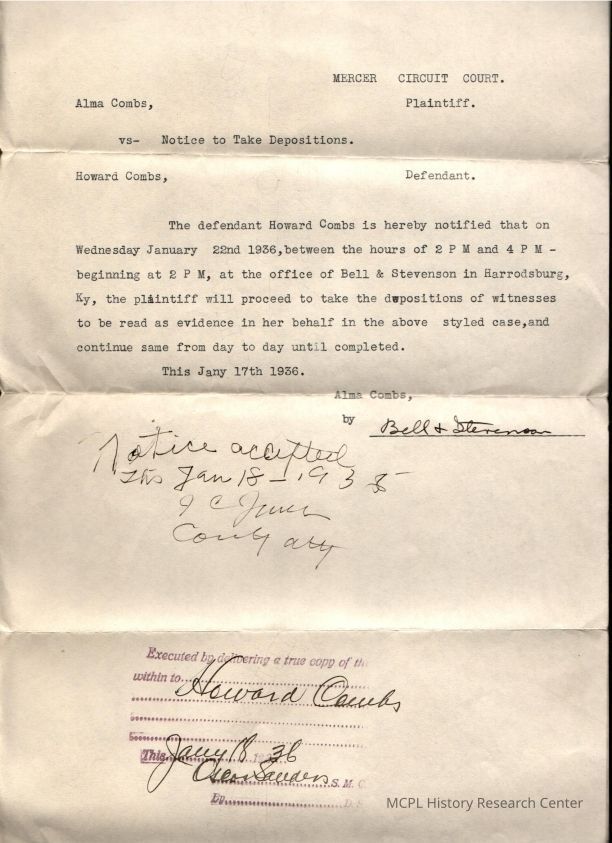 MERCER CIRCUIT COURT.
Alma Combs, Plaintiff.
vs- Notice to Take Depositions.
Howard Combs, Defendant.
The defendant Howard Combs is hereby notified that on
Wednesday January 22nd 1936,between the hours of 2 P M and 4 P M -
beginning at 2 P M, at the office of Bell & Stevenson in Harrodsburg,
Ky, the plaintiff will proceed to take the depositions of witnesses
to be read as evidence in her behalf in the above styled case,and
continue same from day to day until completed.
This Jany 17th 1936.
Alma Combs,
by Bell & Stevenson
Notice accepted
This Jan 18 - 193
Conty atty
Executed by delivering a true copy of th
within to Howard Combs
This Jany 18 1936
Oscar Sanders S. M. C.
By D. S
MCPL History Research Center